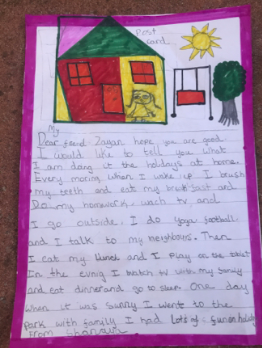 Post
card
My
Dear freind Zayan hope you are good.
I would like to tell you what
I am doing it the holidays at home.
Every moring when I wake up I brush
my teeth and eat my and
Do my homework. wach tv and
I go outside. I do yoga football.
and I talk to my neighbors. Then
I eat my lunch and I play
In the evnig I watch tv with my family
and eat dinner and go to sleep. One day
when it was sunny I went to the
park with family I had lots of fun on holiday
From